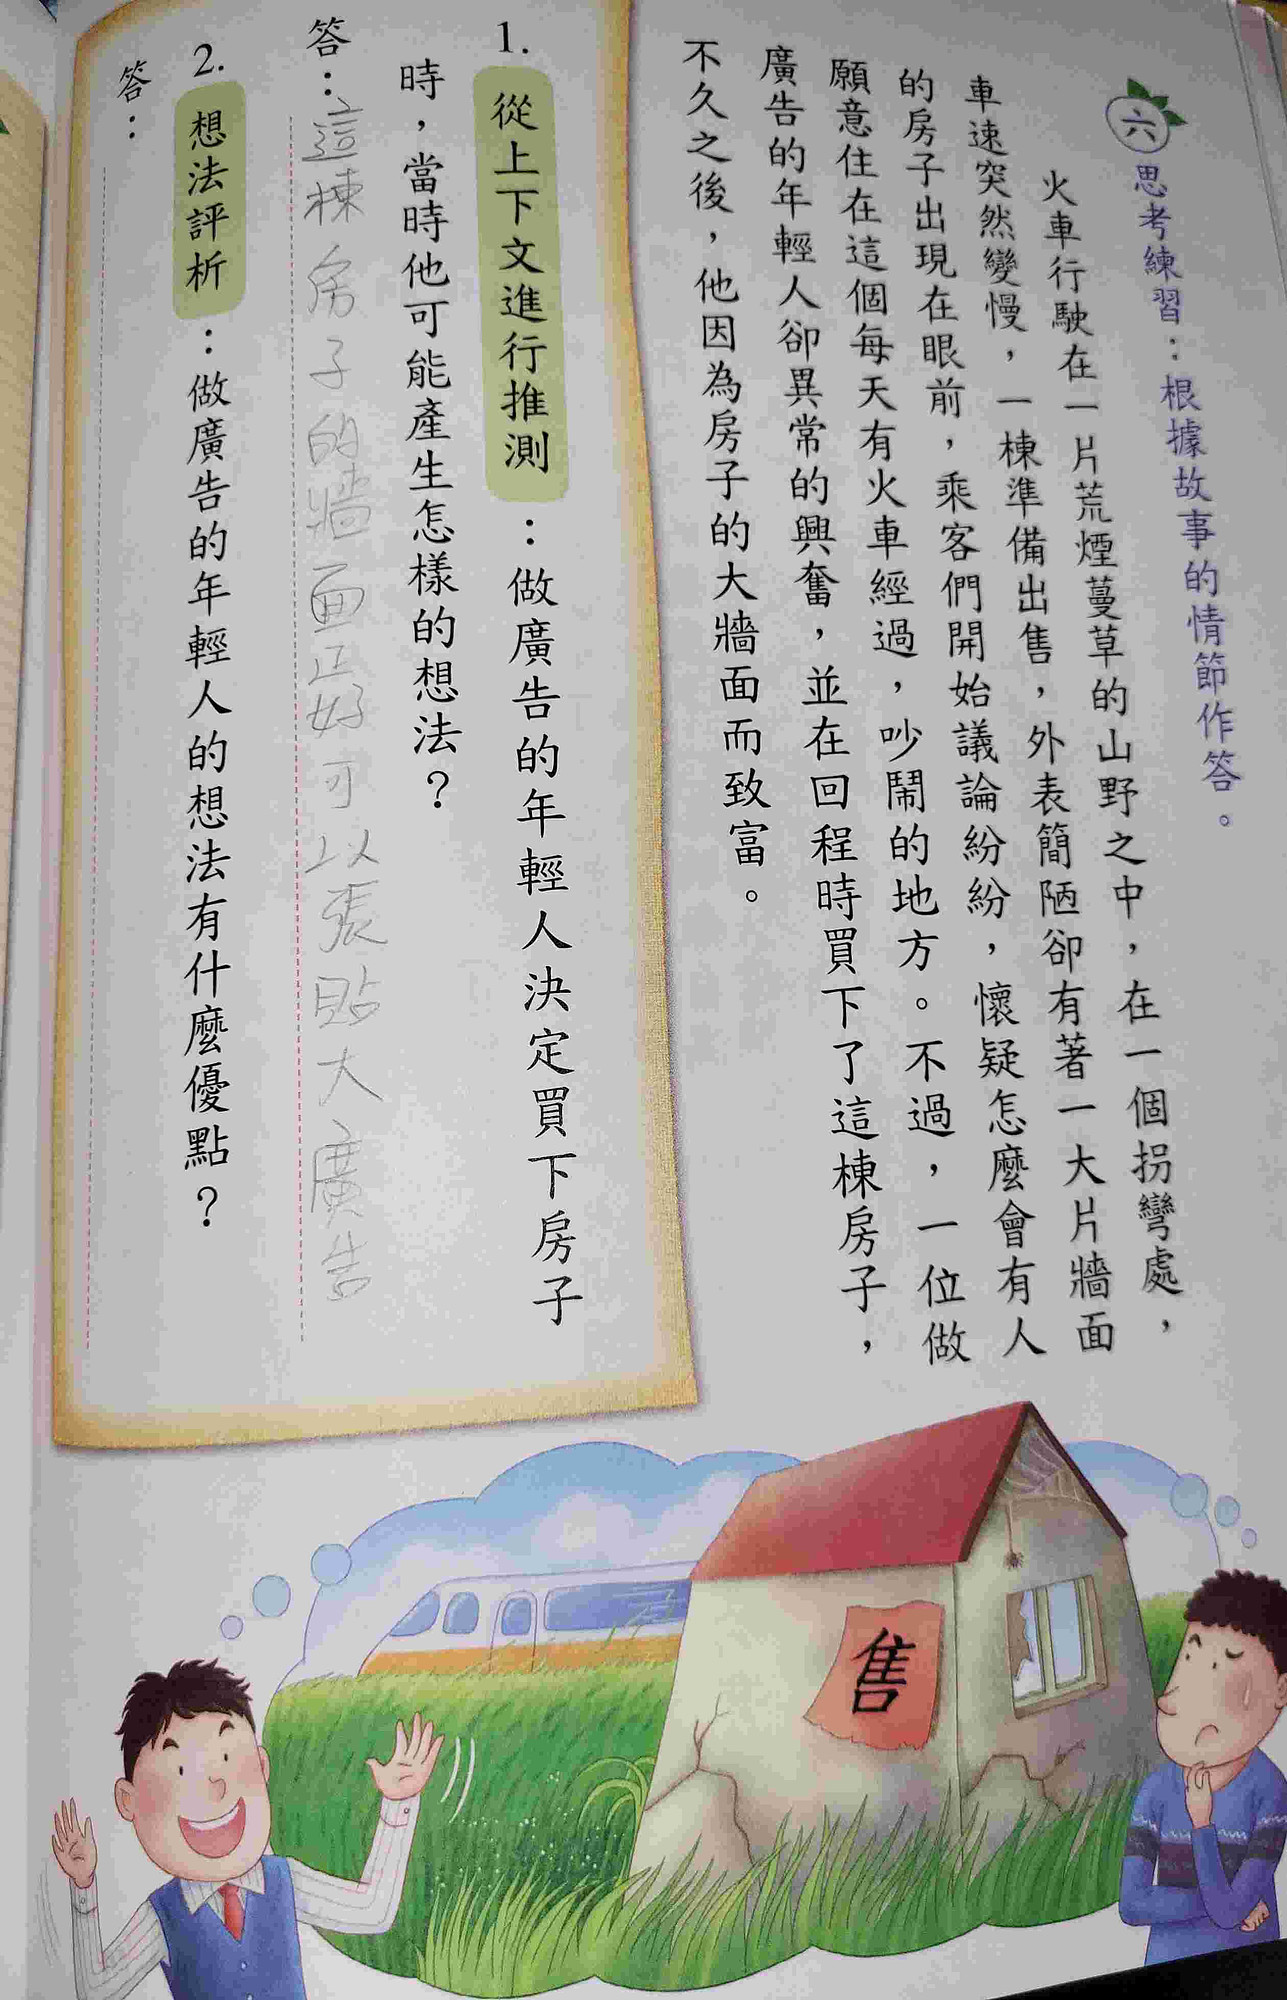 六 思考練習：根據故事的情節作答。
火車行駛在一片荒煙蔓草的山野之中，在一個拐彎處，
車速突然變慢，一棟準備出售，外表簡陋卻有著一大片牆面
的房子出現在眼前，乘客們開始議論紛紛，懷疑怎麼會有人
願意住在這個每天有火車經過，吵鬧的地方。不過，一位做
廣告的年輕人卻異常的興奮，並在回程時買下了這棟房子，
不久之後，他因為房子的大牆面而致富。
1. 從上下文進行推測：做廣告的年輕人決定買下房子
時，當時他可能產生怎樣的想法？
答：這棟房子的牆面正好可以張貼大廣告
2. 想法評析：做廣告的年輕人的想法有什麼優點？
答：
售